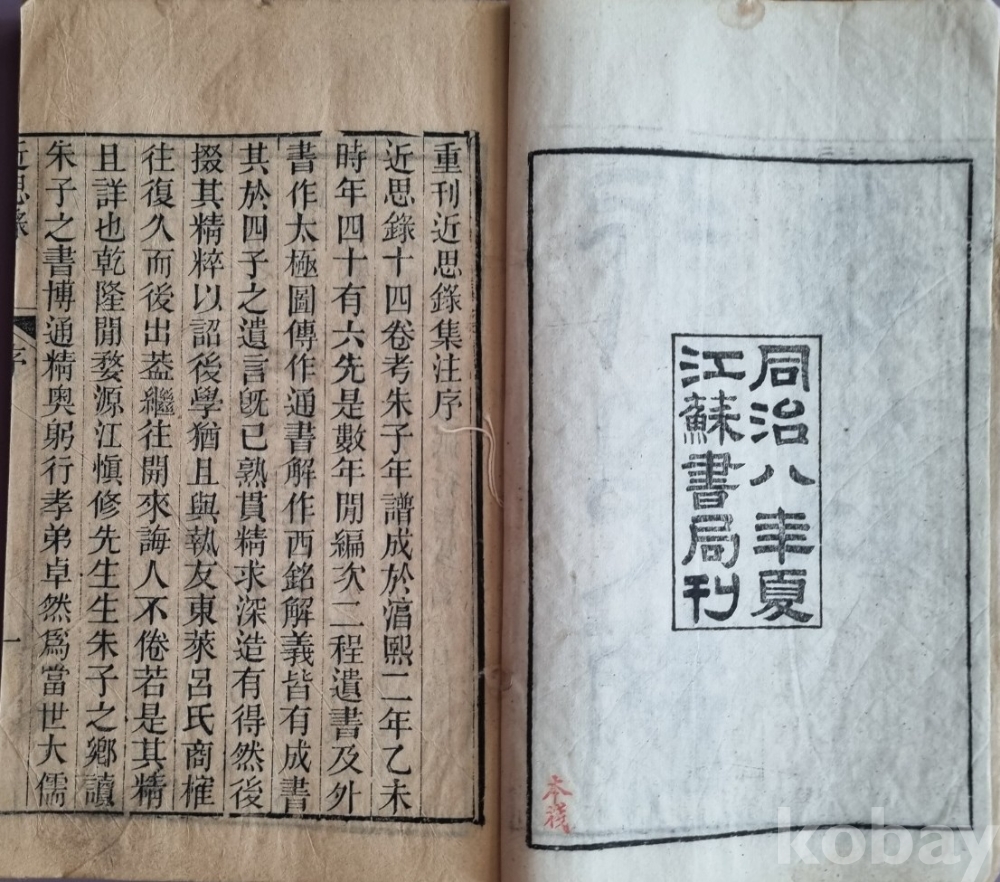 同治八年夏
江蘇書局刊
本棧
重刊近思錄集注序
近思錄十四卷考朱子年譜成於湻熙二年乙未
時年四十有六先是數年閒編次二程遺書及外
書作太極圖傳作通書解作西銘解義皆有成書
其於四子之遺言旣已熟貫精求深造有得然後
掇其精粹以詔後學猶且與執友東萊呂氏商榷
往復久而後出葢繼往開來誨人不倦若是其精
且詳也乾隆閒婺源江愼修先生生朱子之鄉讀
朱子之書博通精奥躬行孝弟卓然爲當世大儒
近思錄
序
一
kobay